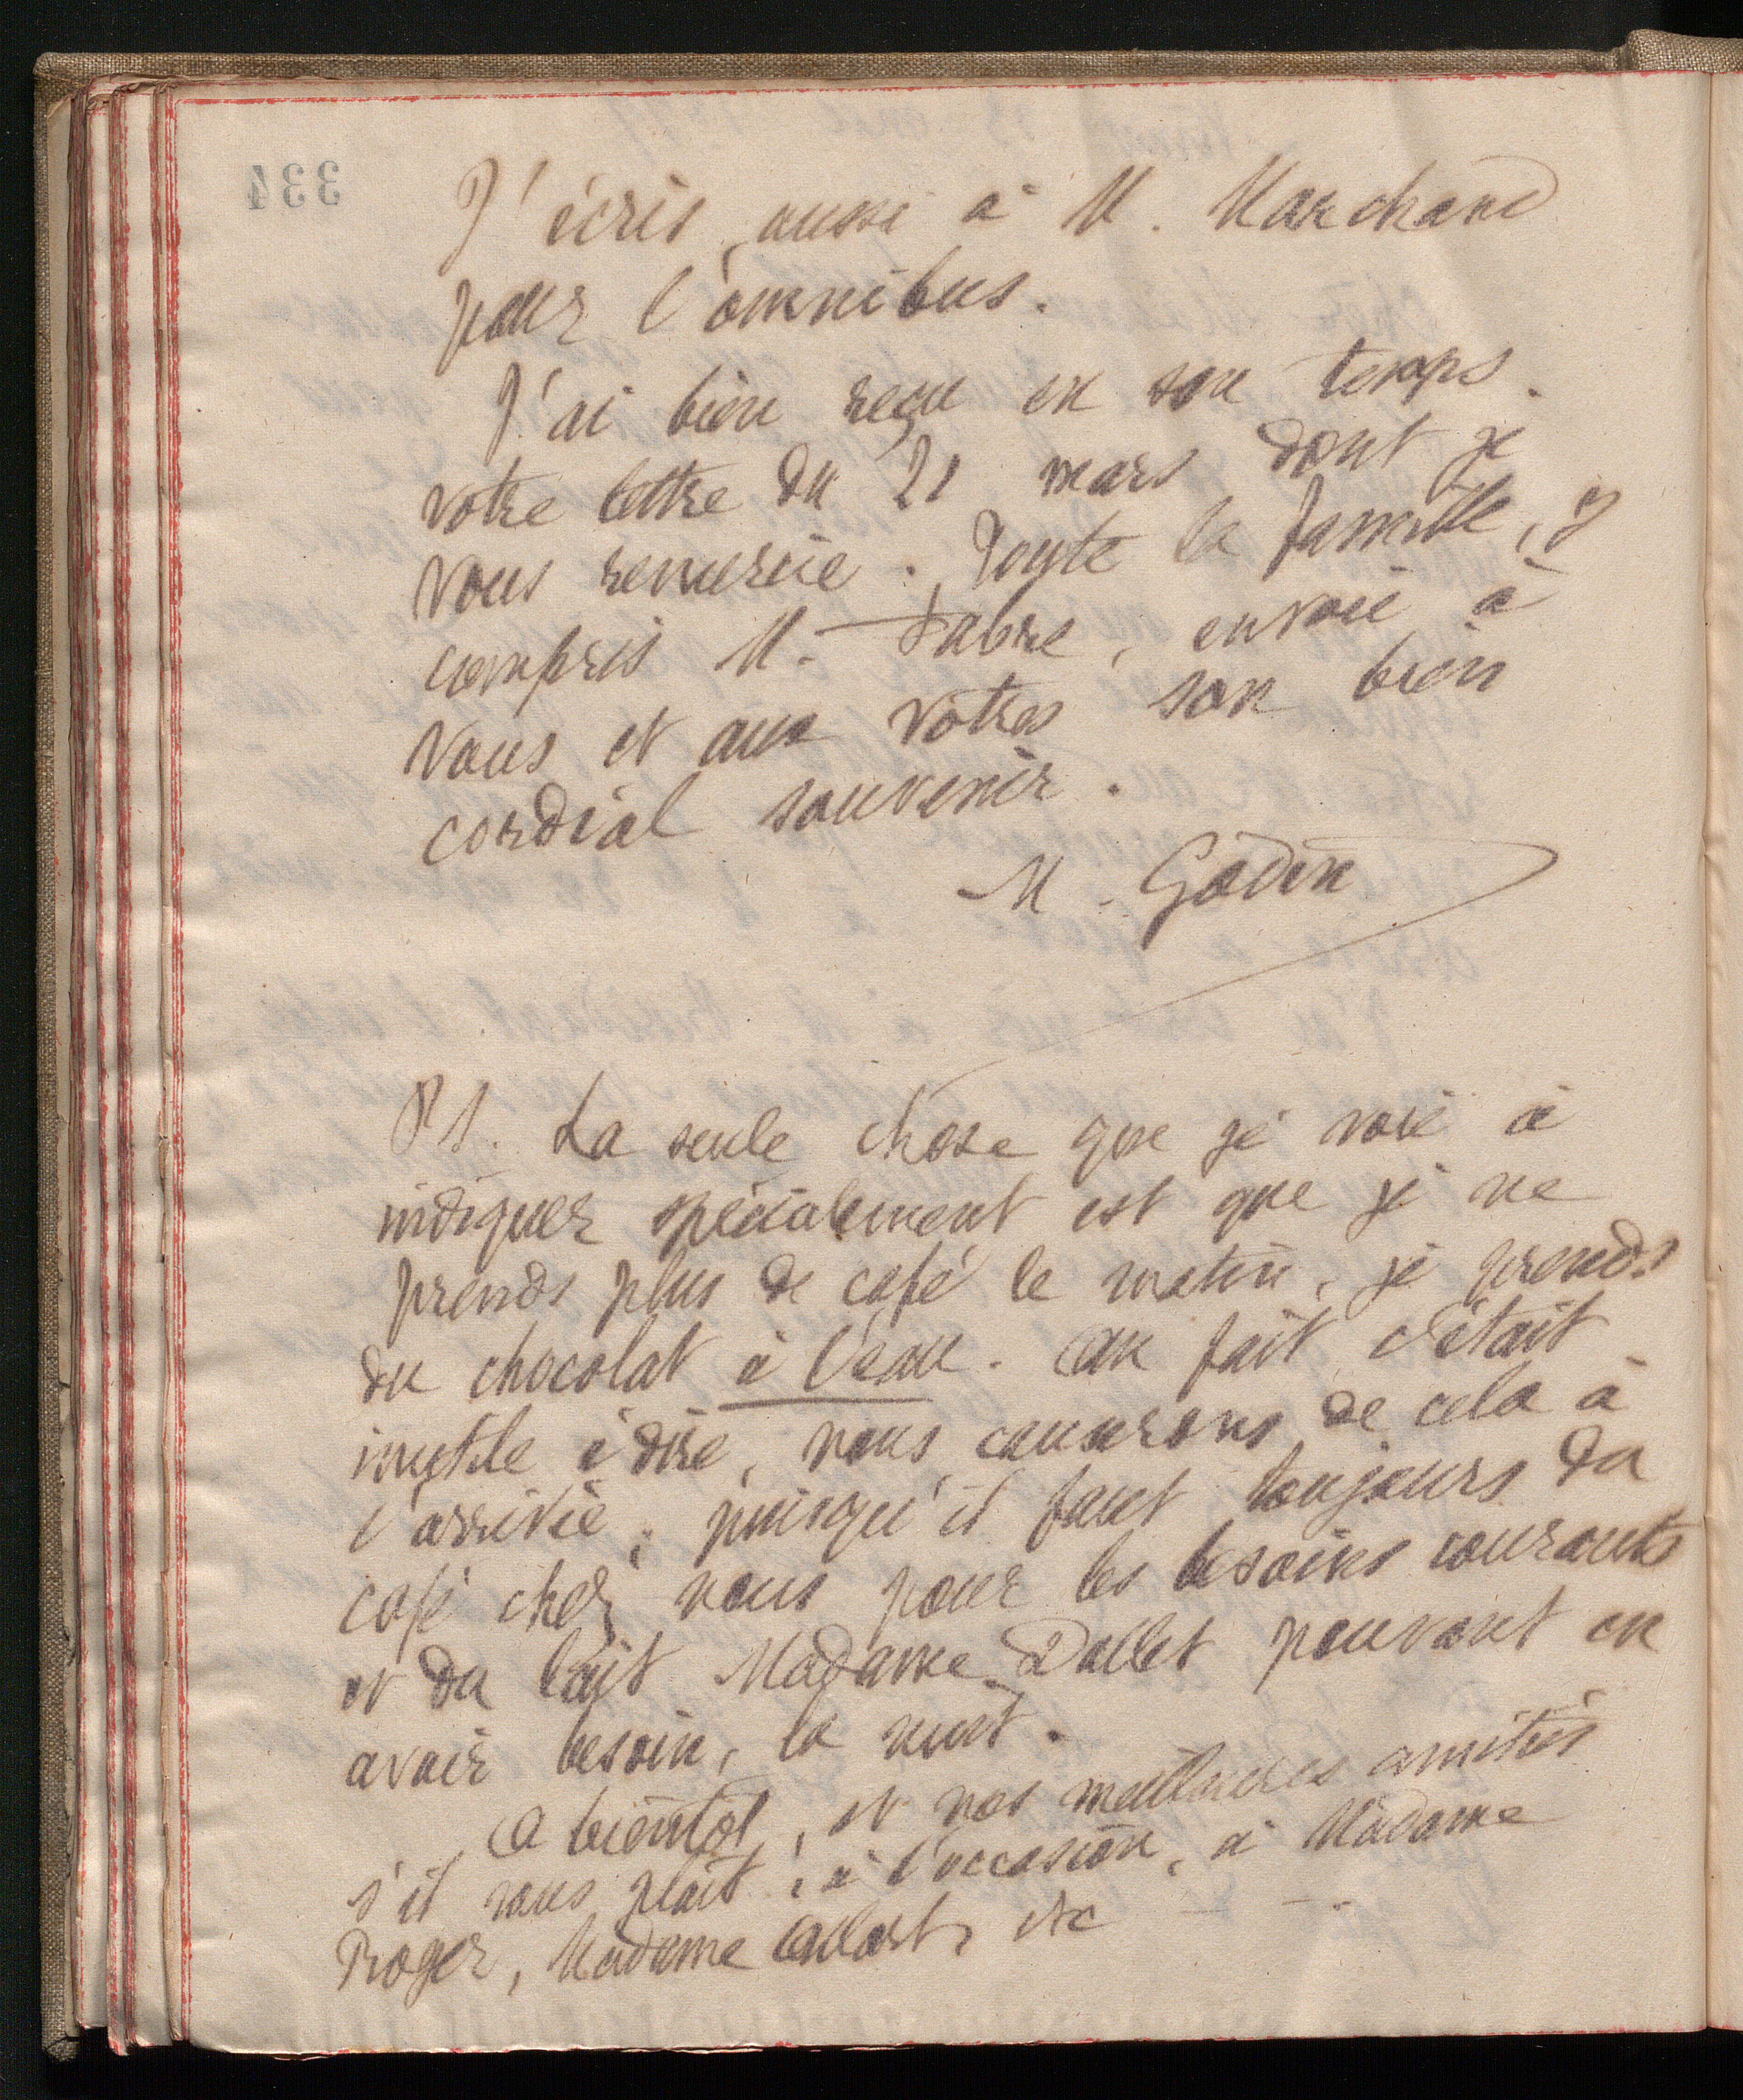 334
J'écris aussi à M. Marchand
pour l'omnibus.
J'ai bien reçu en son temps
votre lettre du 21 mars dont je
vous remercie. Toute la famille, y
compris M. Fabre, envoie à
vous et aux vôtres son bien
cordial souvenir.
M. Godin
PS. La seule chose que je voie à
indiquer spécialement est que je ne
prends plus de café le matin, je prends
du chocolat à l'eau. Au fait c'était
inutile à dire, nous causerons de cela à
l'arrivée, puisqu'il faut toujours du
café chez nous pour les besoins courants
et du lait Madame Dallet pouvant en
avoir besoin, la nuit.
A bientôt, et nos meilleures amitiés
s'il vous plaît, à l'occasion, à Madame
Roger, Madame Allart, etc - - .